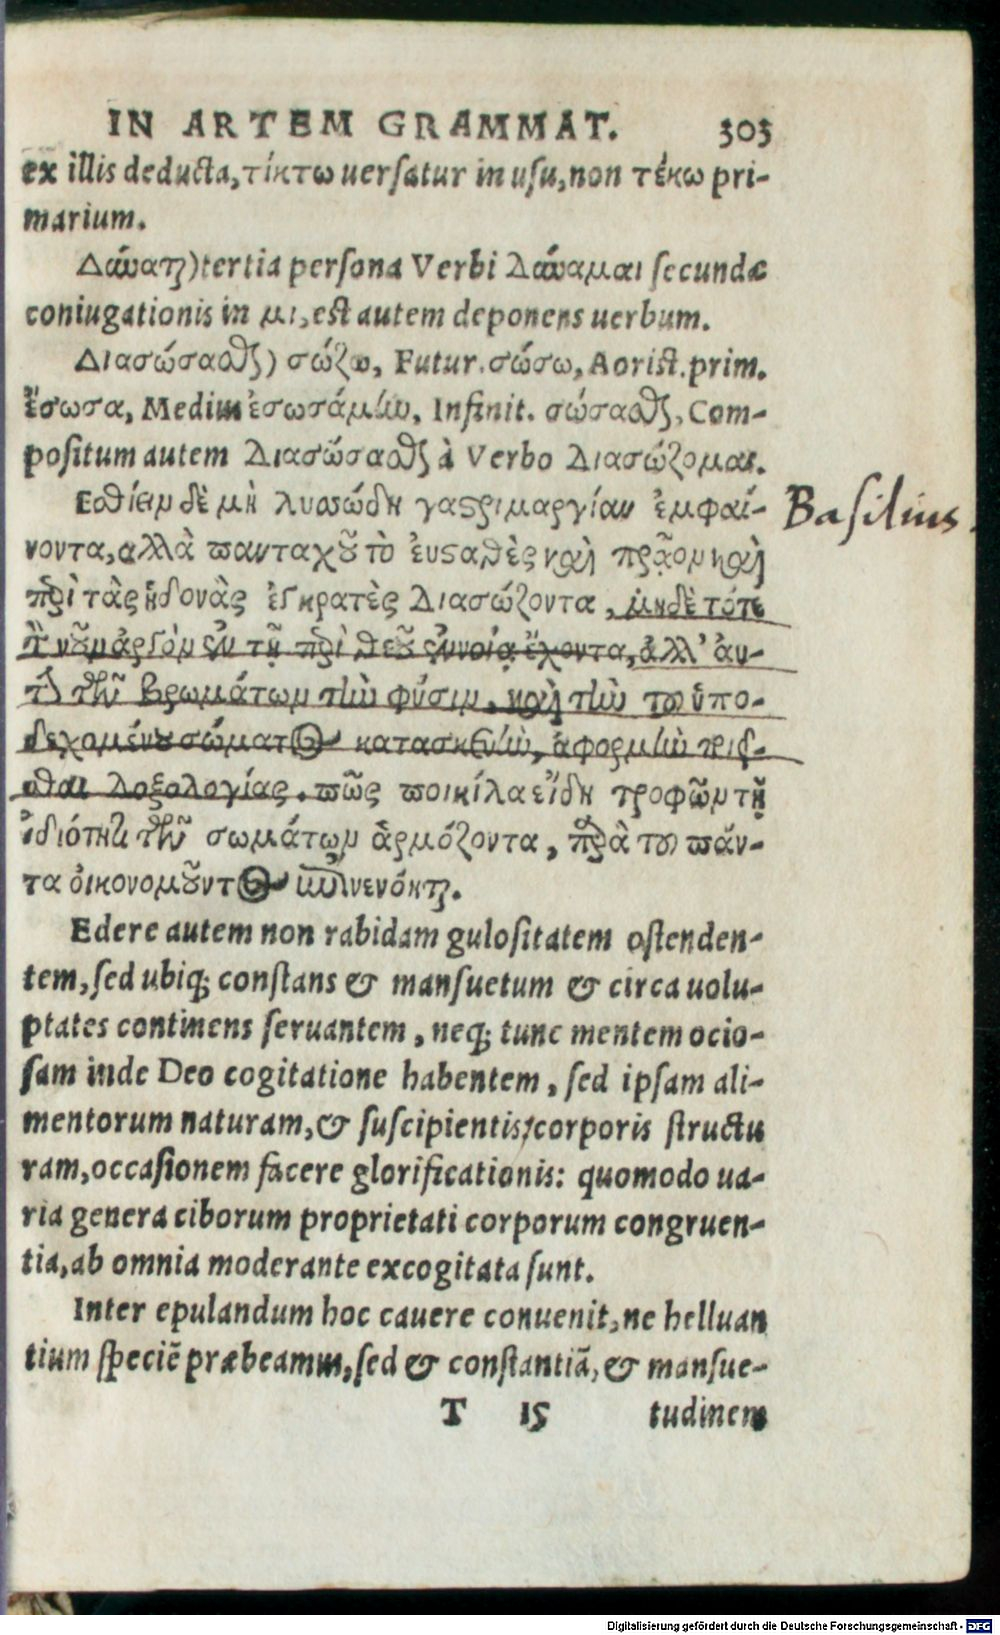 IN ARTEM GRAMMAT. 303
ex illis deducta, τίκτω uersatur in usu, non τέκω pri-
marium.
Δύναται) tertia persona Verbi Δύναμαι secundæ
coniugationis in μι, est autem deponens uerbum.
Διασώσασθαι) σώζω, Futur. σώσω, Aorist. prim.
ἔσωσα, Medium ἐσωσάμην, Infinit. σώσασθαι, Com-
positum autem Διασώσασθαι à Verbo Διασώζομαι.
Εσθίειν δὲ μὴ λυσσώδη γαστριμαργίαν ἐμφαί-
νοντα, αλλὰ πανταχοῦ τὸ ἐυσταθὲς καὶ πρᾶον καὶ
περὶ τὰς ἡδονὰς ἐγκρατὲς Διασώζοντα, μηδὲ τότε
τὸν νοῦν ἀργὸν ἐν τῇ περὶ θεοῦ ἐννοίᾳ ἔχοντα, ἀλλ' ἀυ-
τὴν τῶν βρωμάτων τὴν φύσιν, καὶ τὴν τοῦ ὑπο-
δεχομένου σώματος κατασκευὴν, ἀφορμὴν ποιεῖ-
σθαι Δοξολογίας. πῶς ποικίλα εἴδη τροφῶν τῇ
ἰδιότητι τῶν σωμάτων ἁρμόζοντα, παρὰ τοῦ πάν-
τα ὀικονομοῦντος ἐπινενόηται.
Edere autem non rabidam gulositatem ostenden-
tem, sed ubiq; constans & mansuetum & circa uolu-
ptates continens seruantem, neq; tunc mentem ocio-
sam in de Deo cogitatione habentem, sed ipsam ali-
mentorum naturam, & suscipientis corporis structu
ram, occasionem facere glorificationis: quomodo ua-
ria genera ciborum proprietati corporum congruen-
tia, ab omnia moderante excogitata sunt.
Inter epulandum hoc cauere conuenit, ne helluan
tium speciē præbeamus, sed & constantiā, & mansue-
T 15 tudinem
Basilius.
Digitalisierung gefördert durch die Deutsche Forschungsgemeinschaft - DFG